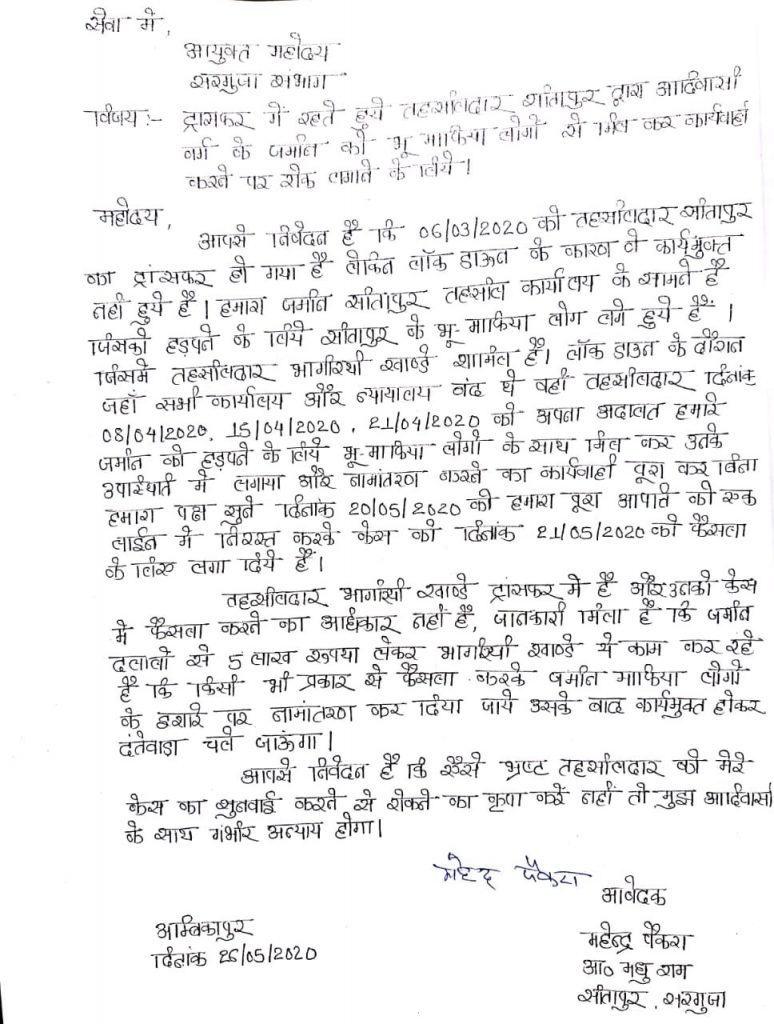 सेवा में,
आयुक्त महोदय
सरगुजा संभाग
विषय:- ट्रांसफर में रहते हुये तहसीलदार सीतापुर द्वारा आदिवासी
वर्ग के जमीन को भू माफिया लोगो से मिल कर कार्यवाही
करने पर रोक लगाने के लिये।
महोदय,
आपसे निवेदन है कि 06/03/2020 को तहसीलदार सीतापुर
का ट्रांसफर हो गया है लेकिन लॉक डाऊन के कारण वे कार्यमुक्त
नहीं हुये है। हमारा जमीन सीतापुर तहसील कार्यालय के सामने है
जिसको हड़पने के लिये सीतापुर के भू-माफिया लोग लगे हुये है।
जिसमें तहसीलदार भागीरथी खाण्डे शामिल है। लॉक डाउन के दौरान
जहाँ सभी कार्यालय और न्यायालय बंद थे वहीं तहसीलदार दिनांक
08/04/2020, 15/04/2020, 21/04/2020 को अपना अदालत हमारे
जमीन को हड़पने के लिये भू-माफिया लोगो के साथ मिल कर उनके
उपस्थिति में लगाया और नामांतरण करने का कार्यवाही पूरा कर बिना
हमारा पक्ष सुने दिनांक 20/05/2020 को हमारा पूरा आपत्ति को एक
लाईन में निरस्त करके केस को दिनांक 21/05/2020 को फैसला
के लिए लगा दिये है।
तहसीलदार भागीरथी खाण्डे ट्रांसफर में है और उनको केस
में फैसला करने का अधिकार नहीं है, जानकारी मिला है कि जमीन
दलालो से 5 लाख रूपया लेकर भागीरथी खाण्डे ये काम कर रहे
है कि किसी भी प्रकार से फैसला करके जमीन माफिया लोगो
के इशारे पर नामांतरण कर दिया जाये उसके बाद कार्यमुक्त होकर
दंतेवाड़ा चले जाऊंगा।
आपसे निवेदन है कि ऐसे भ्रष्ट तहसीलदार को मेरे
केस का सुनवाई करने से रोकने का कृपा करें नहीं तो मुझ आदिवासी
के साथ गंभीर अन्याय होगा।
महेन्द्र पैंकरा
आवेदक
अम्बिकापुर
महेन्द्र पैंकरा
दिनांक 26/05/2020
आ० मधु राम
सीतापुर, सरगुजा